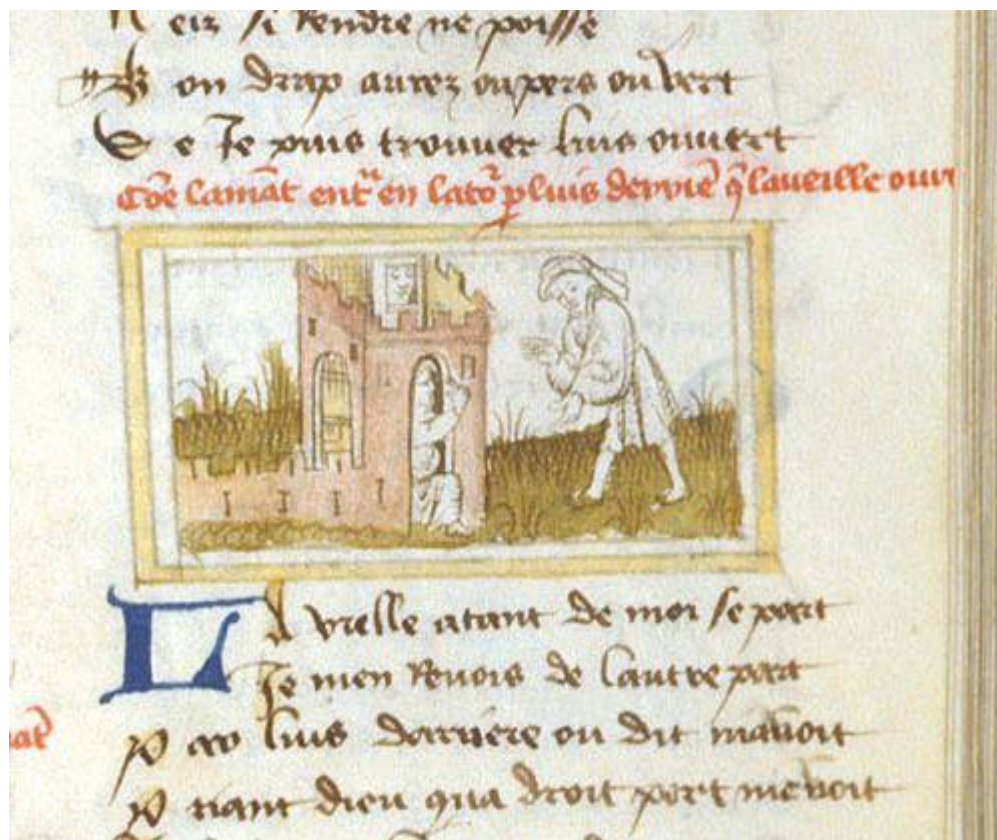 eir si Rendre ne poisse
Bon drap aurez ou pers ou vert
Se Je puis trouver luis ouvert
Cõe lamãt entͬ en la toͬ p luis derriẽ q̃ la veille ouvr
La vielle atant de moi se part
Je men Revois de lautre part
Par luis derriere ou dit mavoit
Priant dieu qua droit port me voit